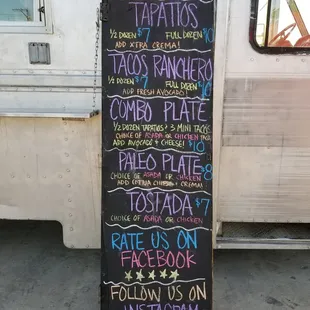 TAPATIOS
½ DOZEN $7 FULL DOZEN $10
ADD XTRA CREMA!
TACOS RANCHERO
½ DOZEN $7 FULL DOZEN $10
ADD FRESH AVOCADO!
COMBO PLATE
½ DOZEN TAPATIOS & 3 MINI TACOS
CHOICE OF ASADA OR CHICKEN
ADD AVOCADO & CHEESE! $10
PALEO PLATE $8
CHOICE OF ASADA OR CHICKEN
ADD COTIJA CHEESE & CREMA!
TOSTADA $7
CHOICE OF ASADA OR CHICKEN
RATE US ON
FACEBOOK
FOLLOW US ON
INSTAGRAM